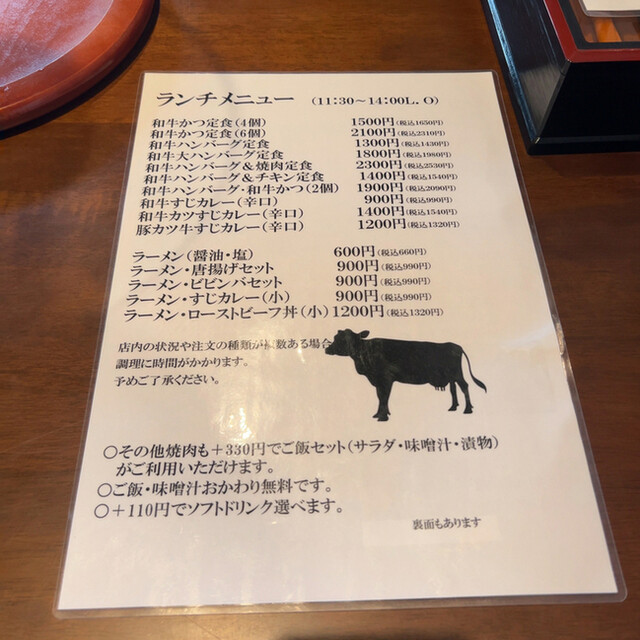 ランチメニュー (11:30～14:00L.O)
和牛かつ定食(4個) 1500円(税込1650円)
和牛かつ定食(6個) 2100円(税込2310円)
和牛ハンバーグ定食 1300円(税込1430円)
和牛大ハンバーグ定食 1800円(税込1980円)
和牛ハンバーグ&焼肉定食 2300円(税込2530円)
和牛ハンバーグ&チキン定食 1400円(税込1540円)
和牛ハンバーグ・和牛かつ(2個) 1900円(税込2090円)
和牛すじカレー(辛口) 900円(税込990円)
和牛カツすじカレー(辛口) 1400円(税込1540円)
豚カツ牛すじカレー(辛口) 1200円(税込1320円)
ラーメン(醤油・塩) 600円(税込660円)
ラーメン・唐揚げセット 900円(税込990円)
ラーメン・ビビンバセット 900円(税込990円)
ラーメン・すじカレー(小) 900円(税込990円)
ラーメン・ローストビーフ丼(小) 1200円(税込1320円)
店内の状況や注文の種類が複数ある場合
調理に時間がかかります。
予めご了承ください。
○その他焼肉も+330円でご飯セット(サラダ・味噌汁・漬物)
がご利用いただけます。
○ご飯・味噌汁おかわり無料です。
○+110円でソフトドリンク選べます。
裏面もあります